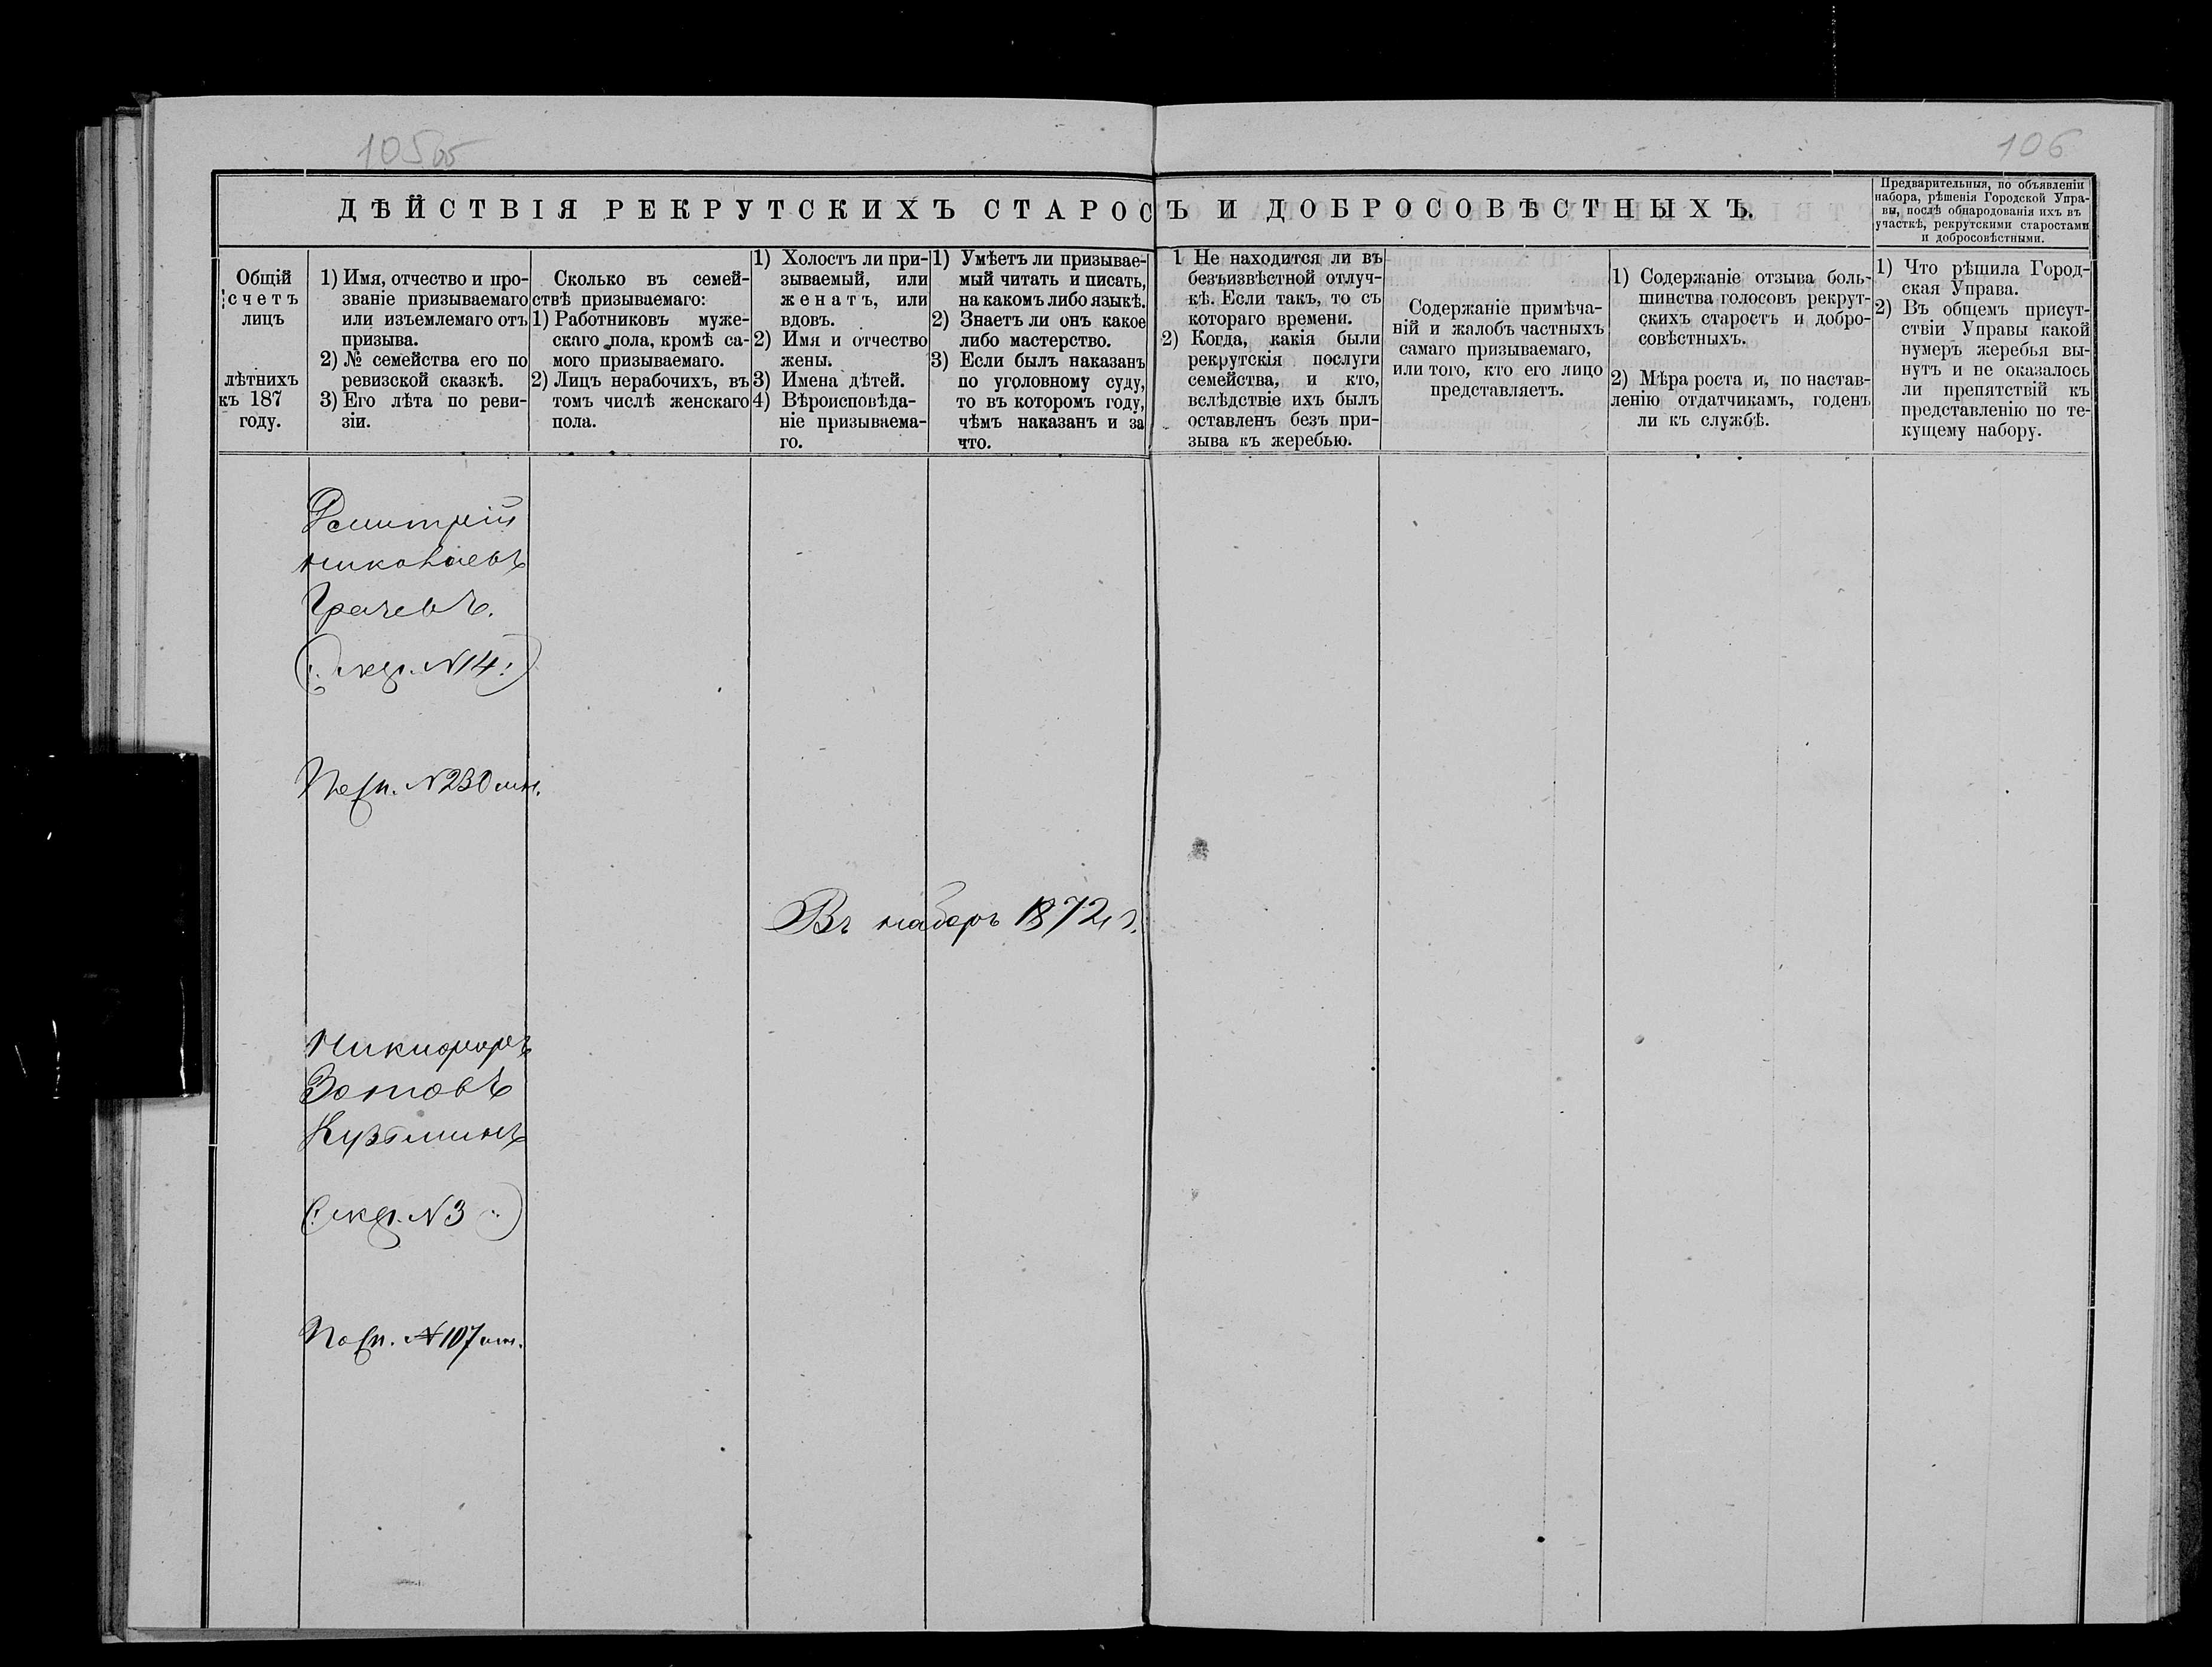 105об
106
ДѢЙСТВІЯ РЕКРУТСКИХЪ СТАРОСТЪ И ДОБРОСОВѢСТНЫХЪ.
Предварительныя, по объявленіи
набора, рѣшенія Городской Упра-
вы, послѣ обнародованія ихъ въ
участкѣ, рекрутскими старостами
и добросовѣстными.
Общій
счетъ
лицъ
лѣтнихъ
къ 187
году.
1) Имя, отчество и про-
званіе призываемаго
или изъемлемаго отъ
призыва.
2) № семейства его по
ревизской сказкѣ.
3) Его лѣта по реви-
зіи.
Сколько въ семей-
ствѣ призываемаго:
1) Работниковъ муже-
скаго пола, кромѣ са-
мого призываемаго.
2) Лицъ нерабочихъ, въ
томъ числѣ женскаго
пола.
1) Холостъ ли при-
зываемый, или
женатъ, или
вдовъ.
2) Имя и отчество
жены.
3) Имена дѣтей.
4) Вѣроисповѣда-
ніе призываема-
го.
1) Умѣетъ ли призывае-
мый читать и писать,
на какомъ либо языкѣ.
2) Знаетъ ли онъ какое
либо мастерство.
3) Если былъ наказанъ
по уголовному суду,
то въ которомъ году,
чѣмъ наказанъ и за
что.
1 Не находится ли въ
безъизвѣстной отлуч-
кѣ. Если такъ, то съ
котораго времени.
2) Когда, какія были
рекрутскія послуги
семейства, и кто,
вслѣдствіе ихъ былъ
оставленъ безъ при-
зыва къ жеребью.
Содержаніе примѣча-
ній и жалобъ частныхъ
самаго призываемаго,
или того, кто его лицо
представляетъ.
1) Содержаніе отзыва боль-
шинства голосовъ рекрут-
скихъ старостъ и добро-
совѣстныхъ.
2) Мѣра роста и, по настав-
ленію отдатчикамъ, годенъ
ли къ службѣ.
1) Что рѣшила Город-
ская Управа.
2) Въ общемъ присут-
ствіи Управы какой
нумеръ жеребья вы-
нутъ и не оказалось
ли препятствій къ
представленію по те-
кущему набору.
Дмитрій
Николаевъ
Грачевъ.
N 14
N 230
Въ наборъ 1872 г.
Никифоръ
Зотовъ
Кузьминъ
N 3
N 107